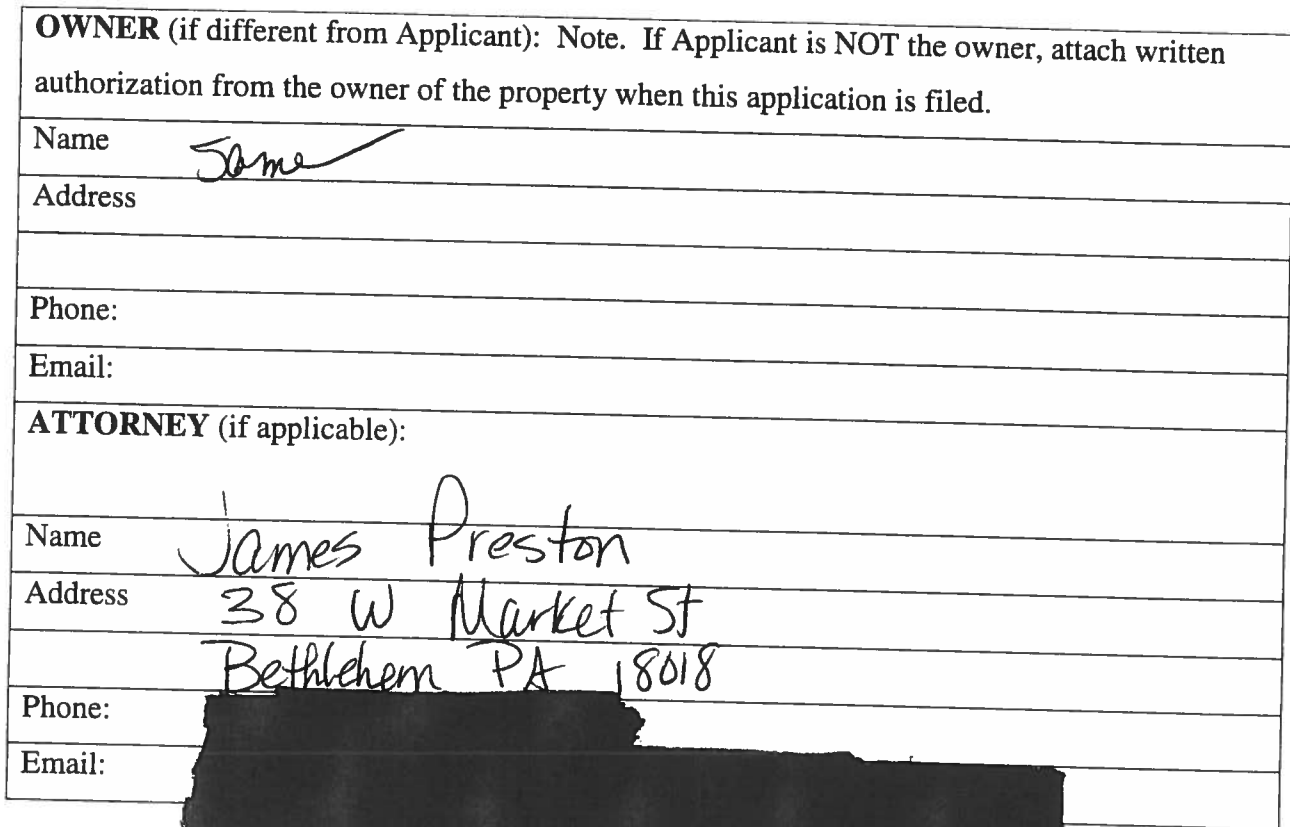 OWNER (if different from Applicant): Note. If Applicant is NOT the owner, attach written
authorization from the owner of the property when this application is filed.
Name Same
Address
Phone:
Email:
ATTORNEY (if applicable):
Name James Preston
Address 38 W Market St
Bethlehem PA 18018
Phone:
Email: